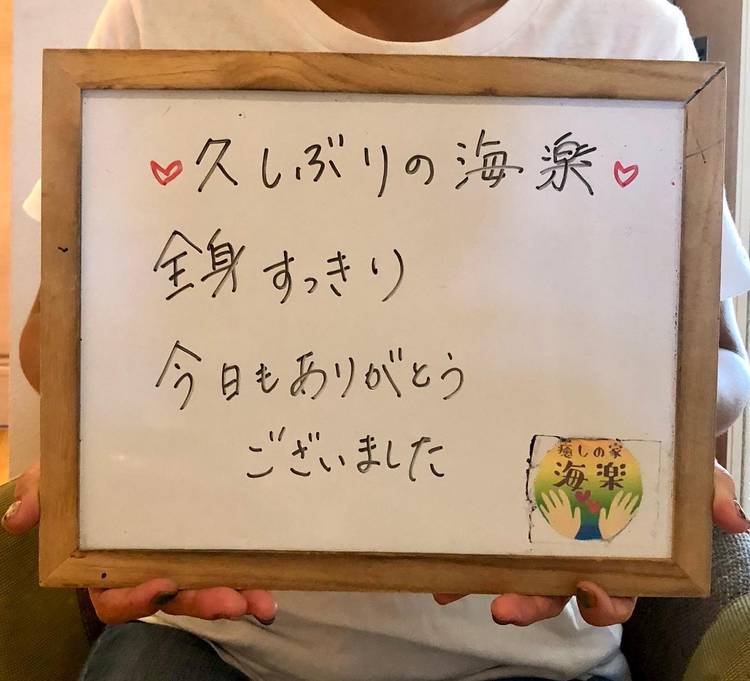 ♥久しぶりの海楽♥
全身すっきり
今日もありがとう
ございました
癒しの家
海楽